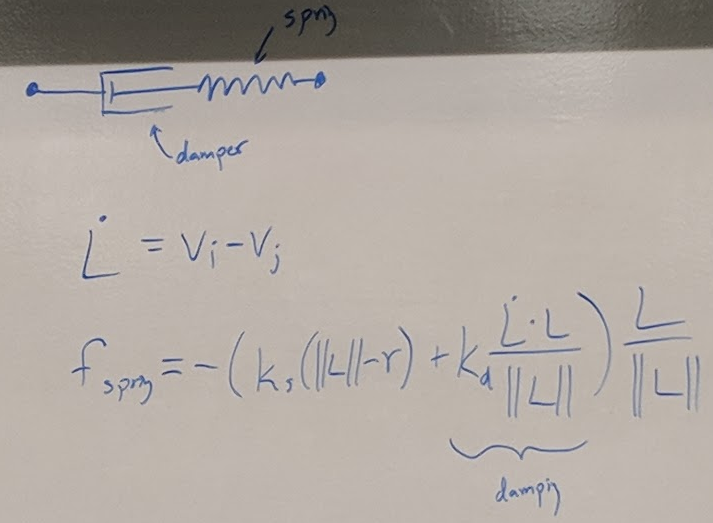 spring
damper
L̇ = vᵢ - vⱼ
f_spring = -(kₛ(||L|| - r) + k_d (L̇·L)/||L||) L/||L||
damping